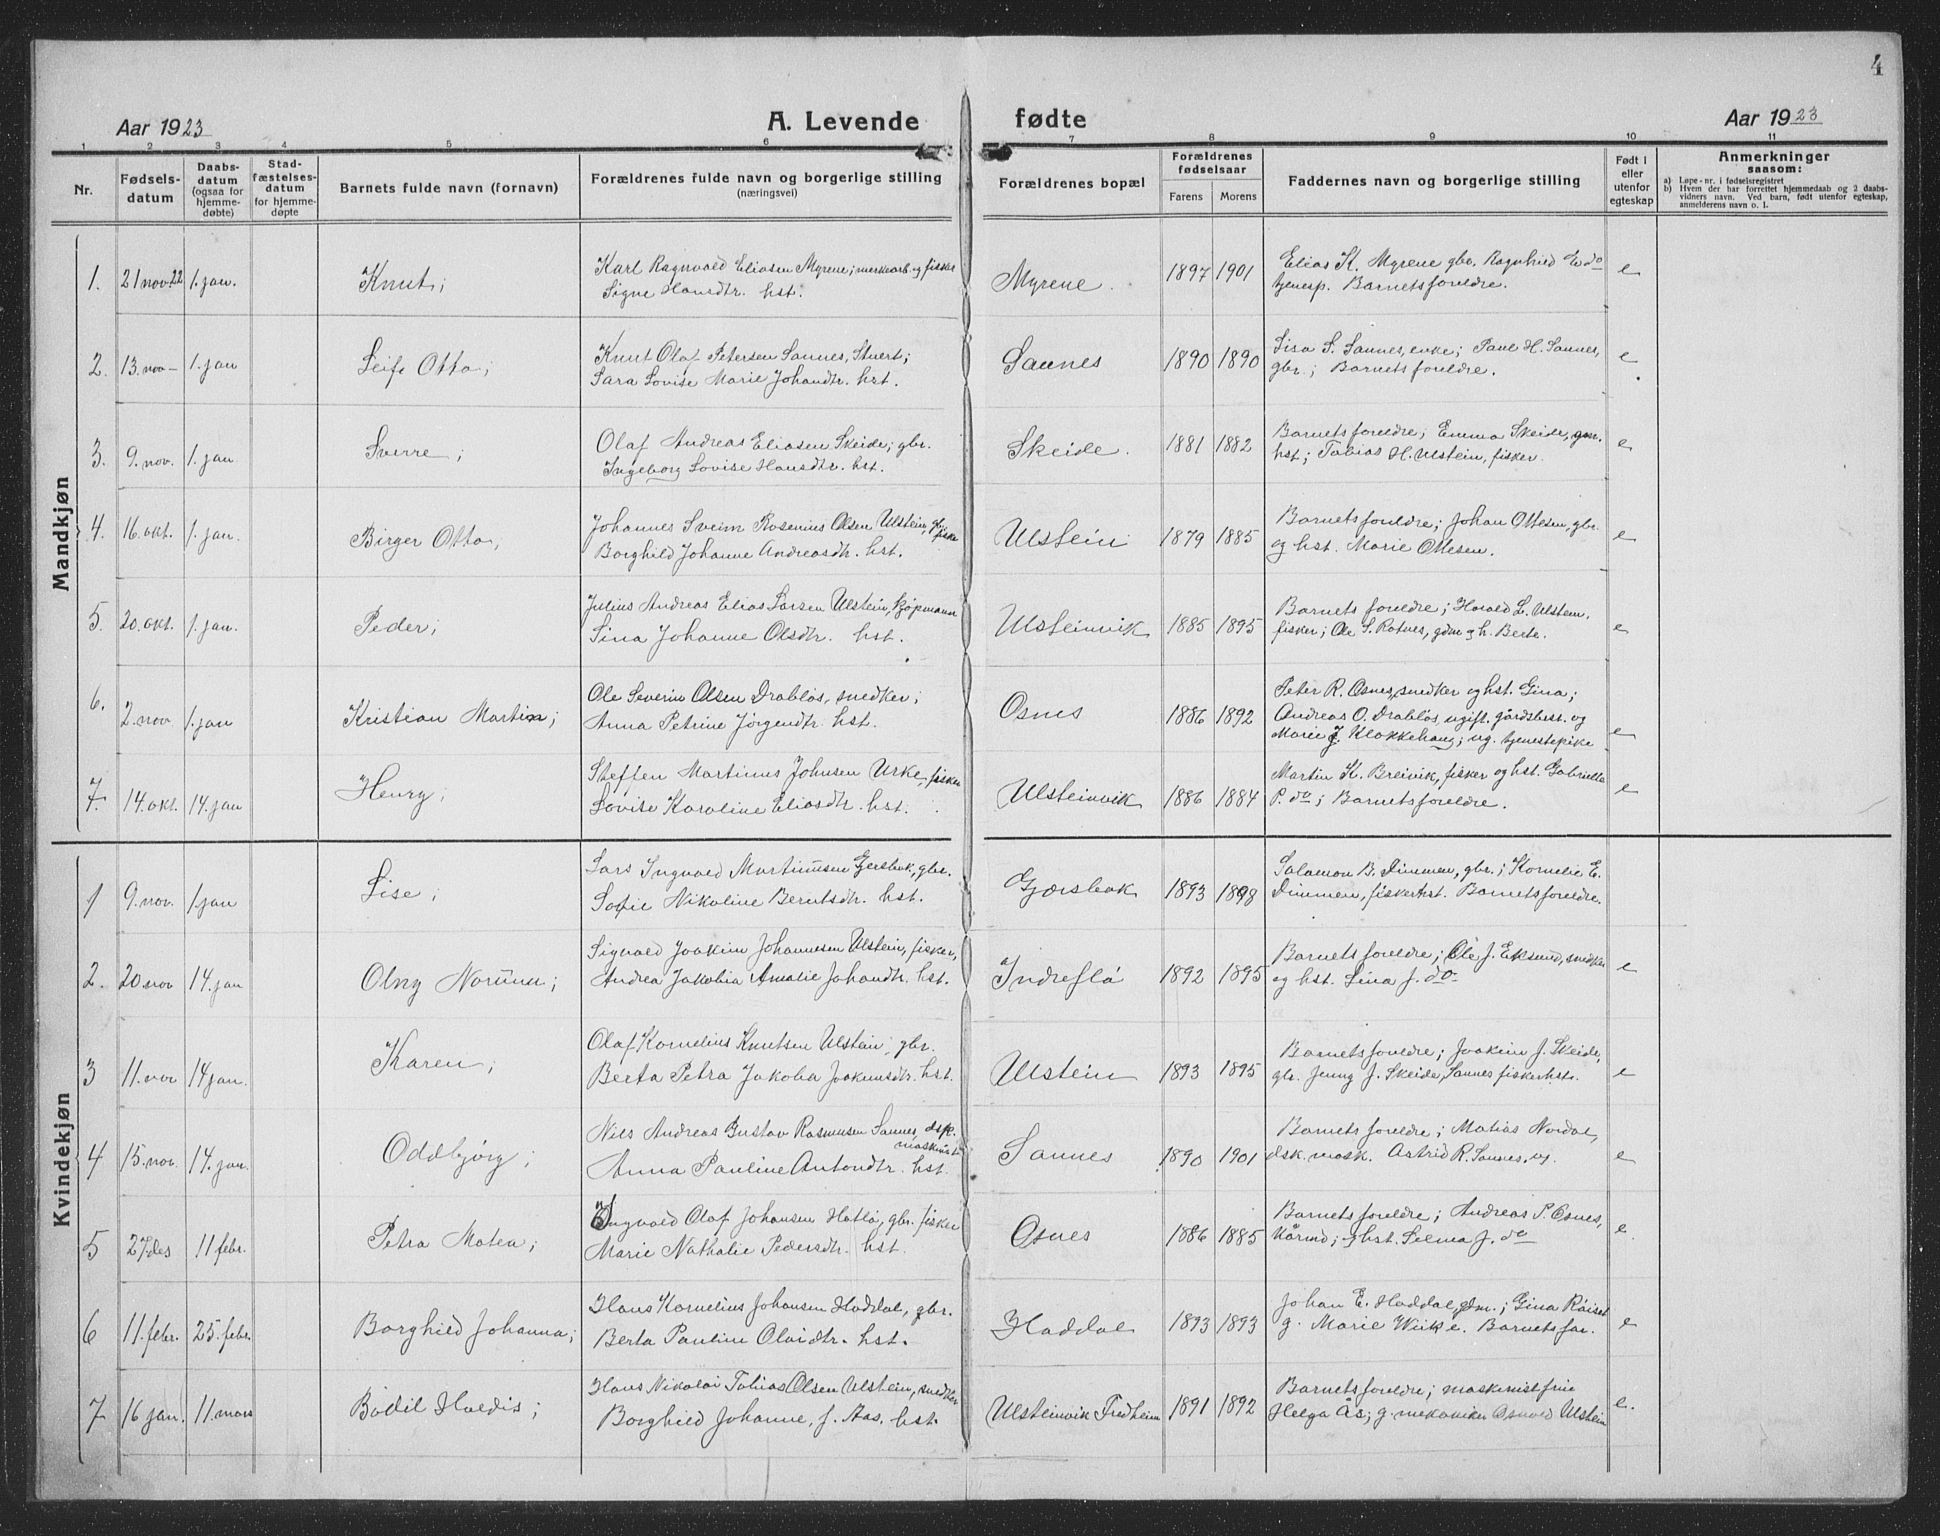 4
Aar 1923 A. Levende fødte Aar 1923
1 2 3 4 5 6 7 8 9 10 11
Nr. Fødsels-datum Daabs-datum (ogsaa for hjemme-døbte) Stad-fæstelses-datum for hjemme-døpte Barnets fulde navn (fornavn) Forældrenes fulde navn og borgerlige stilling (næringsvei) Forældrenes bopæl Forældrenes fødselsaar Farens Morens Faddernes navn og borgerlige stilling Født i eller utenfor egteskap Anmerkninger saasom:
a) Løpe-nr. i fødselsregistret
b) Hvem der har forrettet hjemmedaab og 2 daabs-
vidners navn. Ved barn, født utenfor egteskap,
anmelderens navn o. l.
Mandkjøn
1. 21 nov. 22 1. jan. Knut; Karl Ragnvald Eliasen Myrene; merkearb. og fisker
Signe Hansdtr. hst. Myrene. 1897 1901 Elias K. Myrene gbr. Ragnhild E do
tjenesp. Barnets foreldre. e
2. 13. nov – 1. jan Leif Otto; Knut Olaf Petersen Sannes, Stuert;
Sara Lovise Marie Johandtr. hst. Sannes 1890 1890 Lisa S. Sannes, enke; Paul H. Sannes,
gbr.; Barnets foreldre. e
3. 9. nov. 1. jan Sverre; Olaf Andreas Eliasen Skeide; gbr.
Ingeborg Lovise Hansdtr. hst. Skeide. 1881 1882 Barnets foreldre; Emma Skeide, gm.
hst; Tobias H. Ulstein, fisker. e
4. 16. okt. 1. jan. Birger Otto, Johannes Sveim Rosenius Olsen Ulstein, gbr fisker
Borghild Johanne Andreasdtr. hst. Ulstein 1879 1885 Barnets foreldre; Johan Ottesen, gbr.
og hst. Marie Ottesen. e
5. 20. okt. 1. jan. Peder; Julius Andreas Elias Larsen Ulstein, kjøpmann
Lina Johanne Olsdtr. hst. Ulsteinvik 1885 1895 Barnets foreldre; Harald L. Ulstein,
fisker; Ole S. Rotnes, gdm og h. Berte. e
6. 2. nov 1. jan Kristian Martin; Ole Severin Olsen Drabløs, snedker;
Anna Petrine Jørgendtr. hst. Osnes 1886 1892 Peter R. Osnes, snedker og hst. Gina;
Andreas O. Drabløs, ugift. gårdsbest. og
Marie J. Klokkehaug; ug. tjenestepike e
7. 14. okt. 14. jan Henry; Steffen Martinus Johnsen Urke, fisker
Lovise Karoline Eliasdtr. hst. Ulsteinvik 1886 1884 Martin K. Breivik, fisker og hst. Gabrielle
P. do; Barnets foreldre. e
Kvindekjøn
1 9. nov. 1. jan Lise; Lars Ingvald Martinussen Gjersbak, gbr.
Sofie Nikoline Berntsdtr. hst. Gjærsbak 1893 1898 Salamon B. Dimmen, gbr.; Kornelie E.
Dimmen, fiskerhst. Barnets foreldre.
2. 20. nov 14. jan Olny Noruna; Sigvald Joakim Johannesen Ulstein, fisker,
Andrea Jakobia Amalie Johandtr. hst. Indreflø 1892 1895 Barnets foreldre; Ole J. Eksund, snedker
og hst. Lina J. do. e
3 11. nov 14 jan. Karen; Olaf Kornelius Knutsen Ulstein, gbr.
Berta Petra Jakoba Joakimsdtr. hst. Ulstein 1893 1895 Barnets foreldre; Joakim J. Skeide,
gbr. Jenny J. Skeide, Sannes fiskerhst. e
4 15. nov. 14. jan. Oddbjørg; Nils Andreas Gustav Rasmussen Sannes, dsk. maskinist
Anna Pauline Antondtr. hst. Sannes 1890 1901 Barnets foreldre; Matias Nordal,
dsk. mask. Astrid R. Sannes. ug. e
5 27. des 11 febr. Petra Matea; Ingvald Olaf Johansen Hatlø, gbr. fisker
Marie Nathalie Pedersdtr. hst. Osnes 1886 1885 Barnets foreldre; Andreas P. Osnes,
kårmd; og hst. Selma J. do e.
6 11. febr. 25. febr. Borghild Johanna; Hans Kornelius Johansen Haddal, gbr.
Berta Pauline Olaidtr. hst. Haddal 1893 1893 Johan E. Haddal, gdm.; Gina Råiset
g. Marie Wiik e. Barnets far. e
7 16 jan. 11. mars Bodil Haldis; Hans Nikolai Tobias Olsen Ulstein, snedker
Borghild Johanne, f. Aas, hst. Ulsteinvik Fredheim 1891 1892 Barnets foreldre; maskinistfrue
Helga Ås; g. mekaniker Osvald Ulstein e.